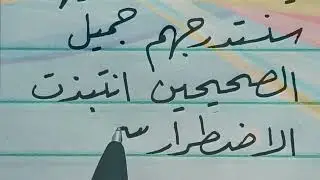 سنستدرجهم جميل
الصحيحين انتبذت
الاضطرار س